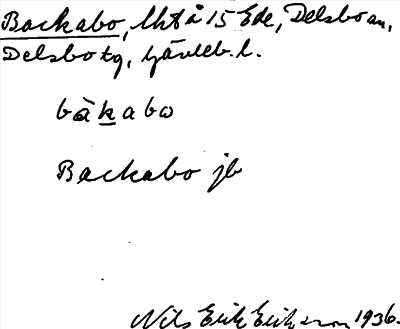 Backabo, lht å 15 Ede, Delsbo an,
Delsbo tg, Gävleb. l.
bàkabω
Backabo jb
Nils Erik Erikson 1936.